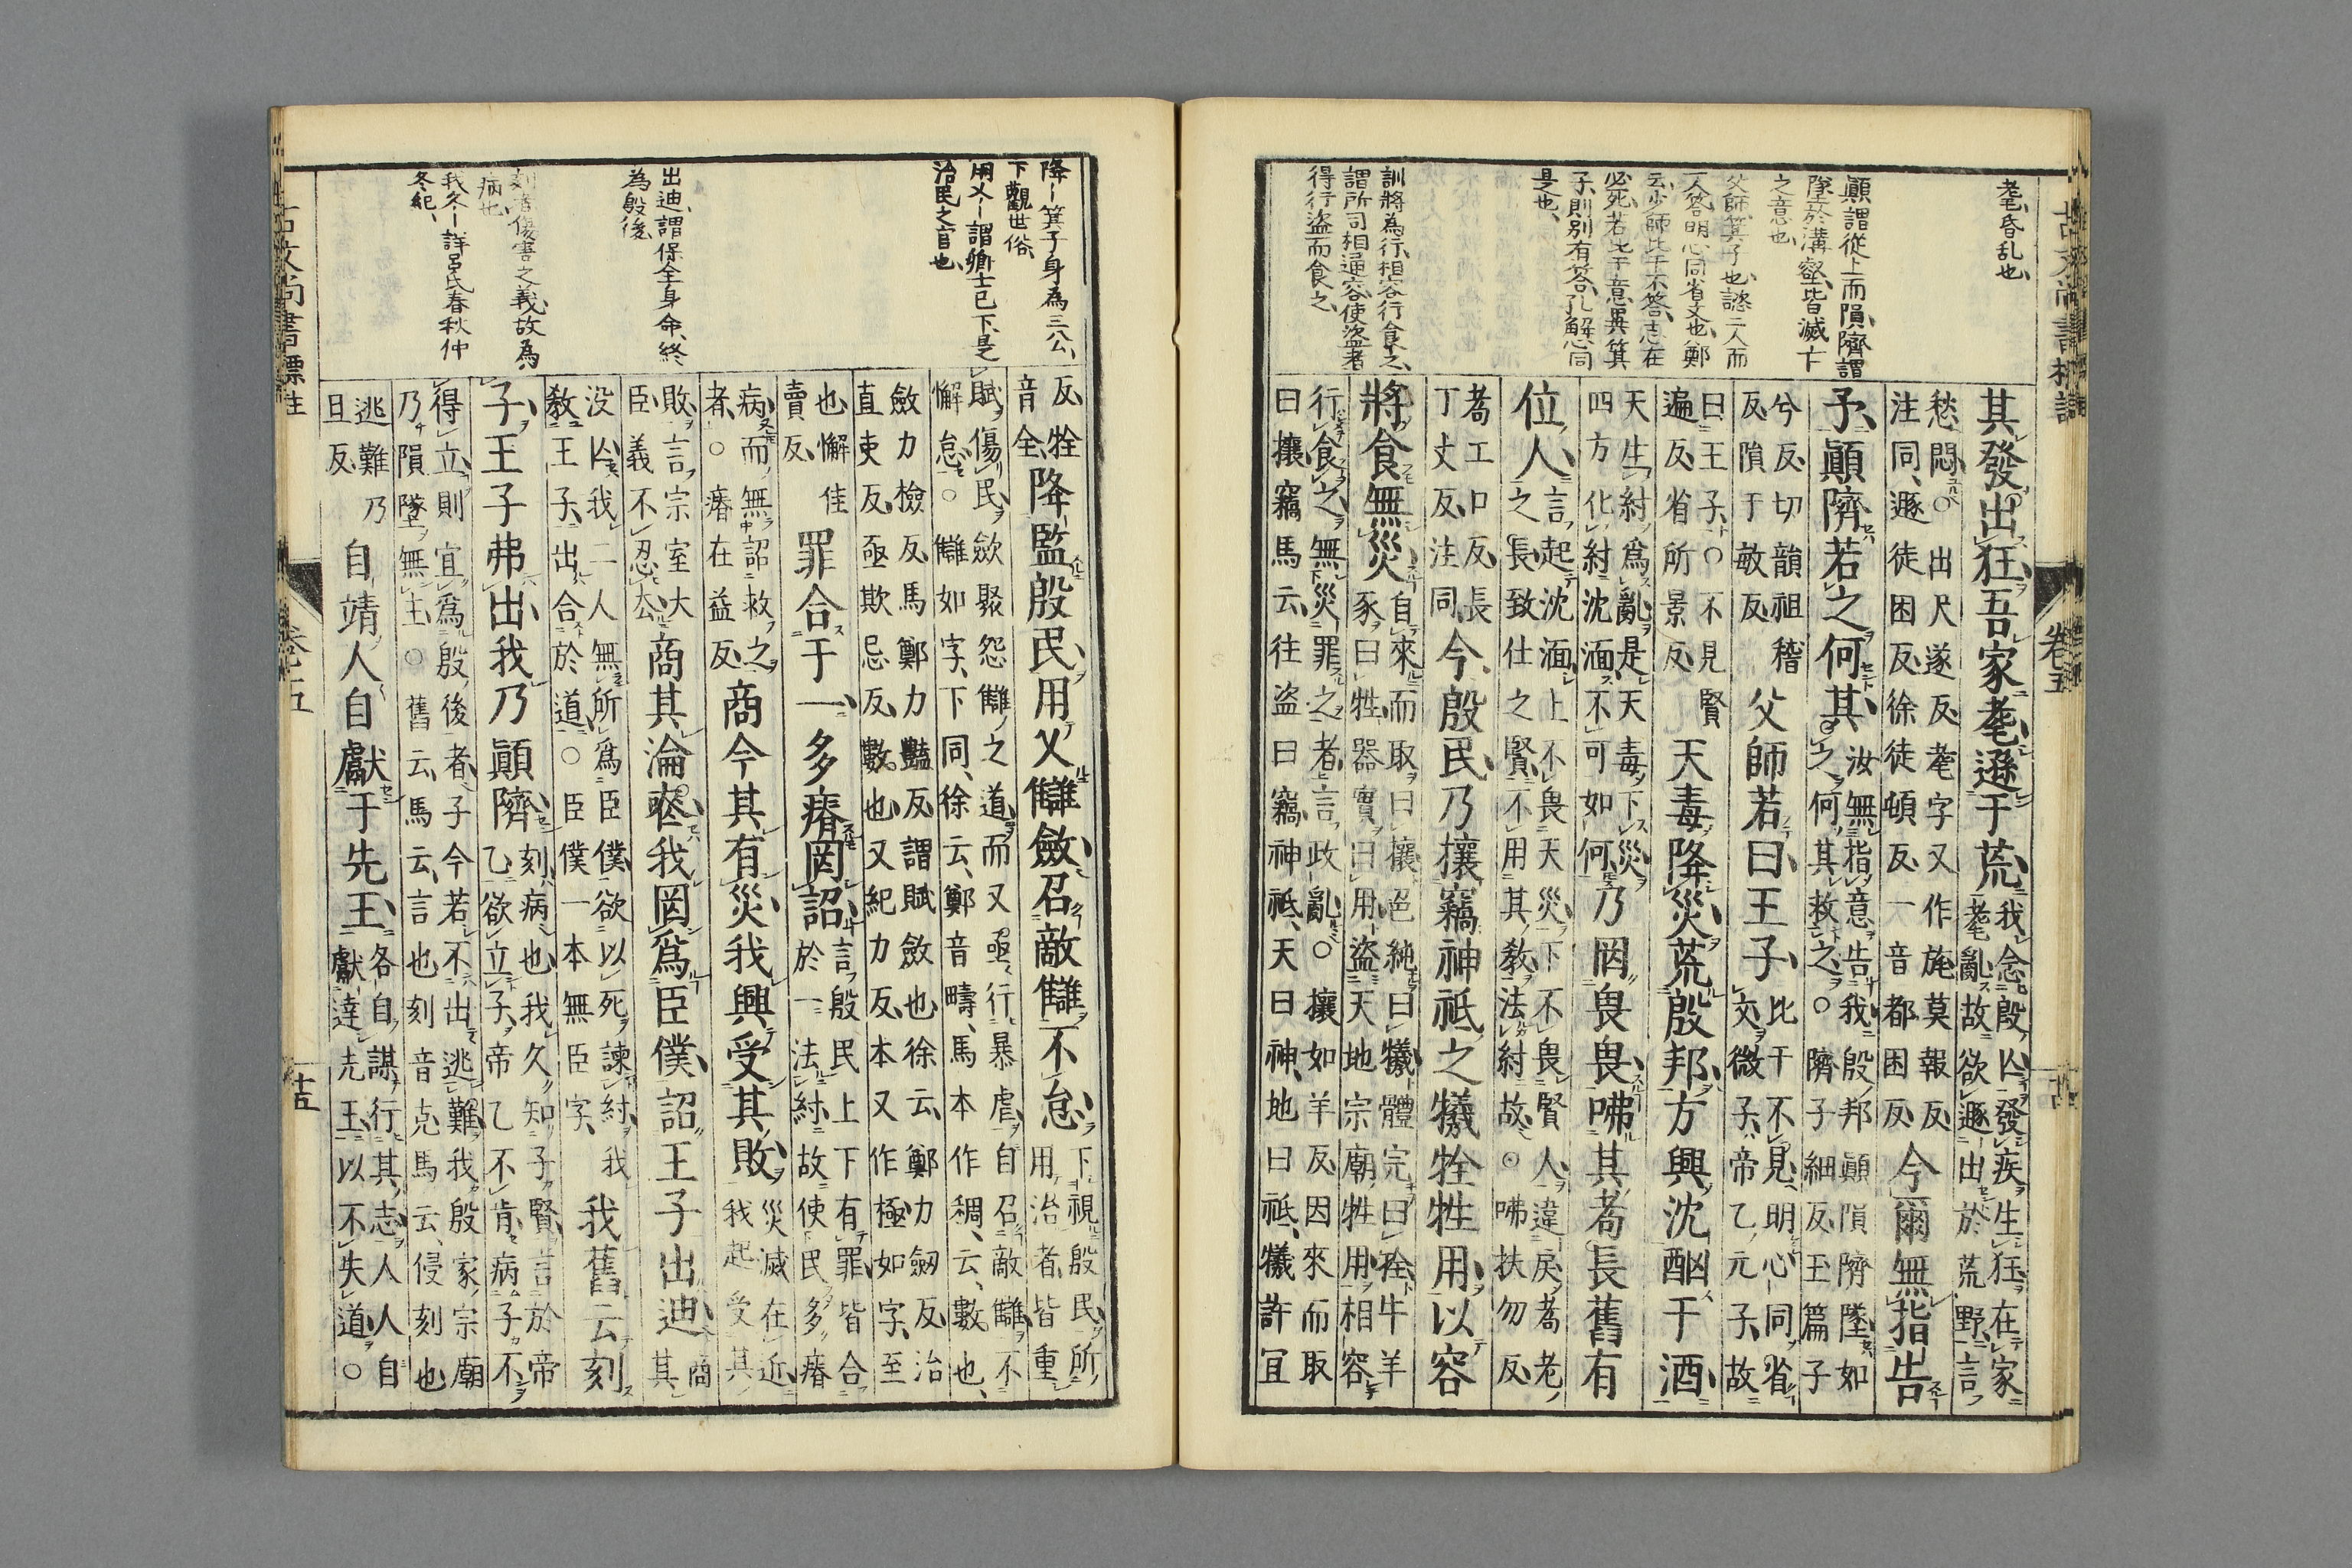 耄昏乱也
顚謂從上而隕隮謂
墜於溝壑皆滅亡
之意也
父師箕子也諮二人而
一人答明心同省文也鄭
云少師比干不答志在
必死若比干意異箕
子則別有答孔解同
是也
訓將為行相容行食之
謂所司相通容使盜者
得行盜而食之
其發出狂吾家耄遜于荒
我念殷亾發疾生狂在家
耄亂故欲遯出於荒野言
愁悶○出尺遂反耄字又作旄莫報反
注同遯徒困反徐徒頓反一音都困反
今爾無指告
予顚隮若之何其
汝無指意告我殷邦顚隕隮墜如
之何其救之○隮子細反王篇子
兮反切韻祖稽
反隕于敏反
父師若曰王子
比干不見明心同省
文微子帝乙元子故
曰王子○不見賢
遍反省所景反
天毒降災荒殷邦方興沈酗于酒
天生紂爲亂是天毒下災
四方化紂沈湎不可如何
乃罔畏畏咈其耇長舊有
位人
言起沈湎上不畏天災下不畏賢人違戾耇老
之長致仕之賢不用其敎法紂故○咈扶勿反
耇工口反長
丁丈反注同
今殷民乃攘竊神祇之犧牷牲用以容
將食無災
自來而取曰攘色純曰犧體完曰牷牛羊
豕曰牲器實曰用盜天地宗廟牲用相容
行食之無災罪之者言政亂○攘如羊反因來而取
曰攘竊馬云往盜曰竊神祇天曰神地曰祇犧許宜
卷五
降―箕子身為三公
下觀世俗
用乂―謂卿士已下是
治民之官也
出迪謂保全身命終
為殷後
刻者傷害之義故為
病也
我久―詳呂氏春秋仲
冬紀
反牷
音全
降監殷民用乂讎斂召敵讎不怠
下視殷民所
用治者皆重
賦傷民斂聚怨讎之道而又亟行暴虐自召敵讎不
懈怠○讎如字下同徐云鄭音疇馬本作稠云數也
斂力檢反馬鄭力豔反謂賦斂也徐云鄭力劔反治
直吏反亟欺忌反數也又紀力反本又作極如字至
也懈佳
賣反
罪合于一多瘠罔詔
言殷民上下有罪皆合
於一法紂故使民多瘠
病而無詔救之
者○瘠在益反
商今其有災我興受其敗
災滅在近
我起受其
敗言宗室大
臣義不忍去
商其淪喪我罔爲臣僕詔王子出迪
商
其
没亾我二人無所爲臣僕欲以死諫紂我
敎王子出合於道○臣僕一本無臣字
我舊云刻
子王子弗出我乃顚隮
刻病也我久知子賢言於帝
乙欲立子帝乙不肯病子不
得立則宜爲殷後者子今若不出逃難我殷家宗廟
乃隕墜無主○舊云馬云言也刻音克馬云侵刻也
逃難乃
旦反
自靖人自獻于先王
各自謀行其志人人自
獻達先王以不失道○
古文尚書標注
卷五